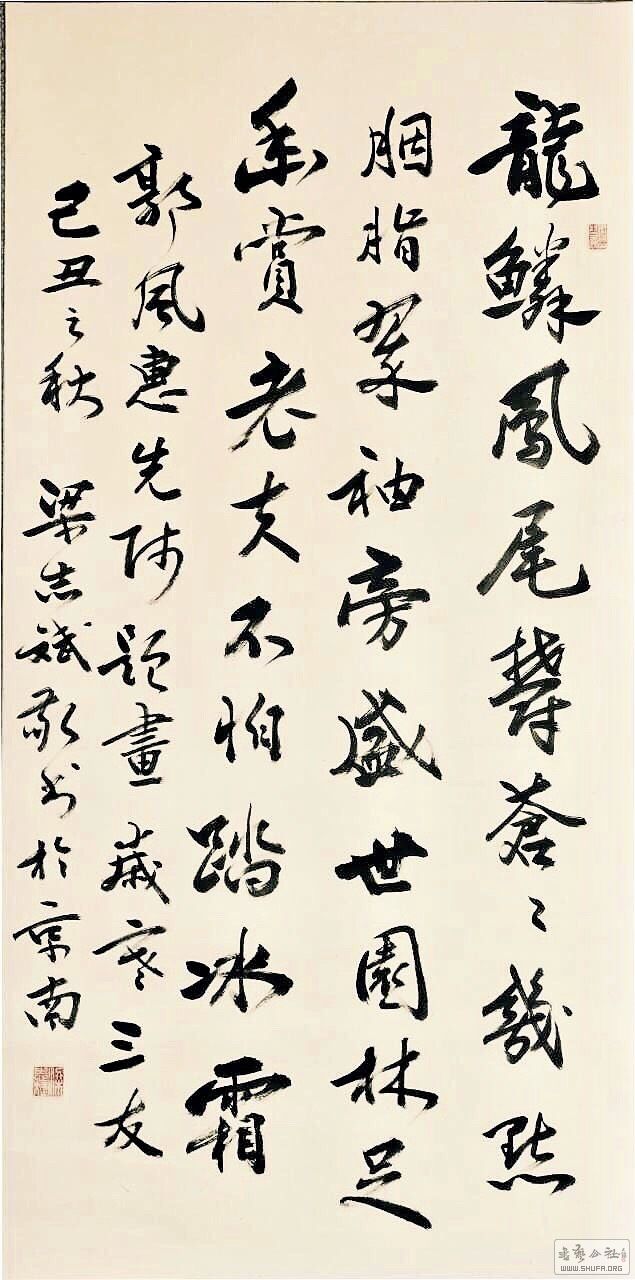 龍鱗鳳尾鬱蒼々幾點
胭脂翠袖旁盛世園林足
幽賞老夫不怕踏冰霜
郭風惠先师題畫歲寒三友
己丑之秋 梁志斌敬书於京南
书艺公社
WWW.SHUFA.ORG